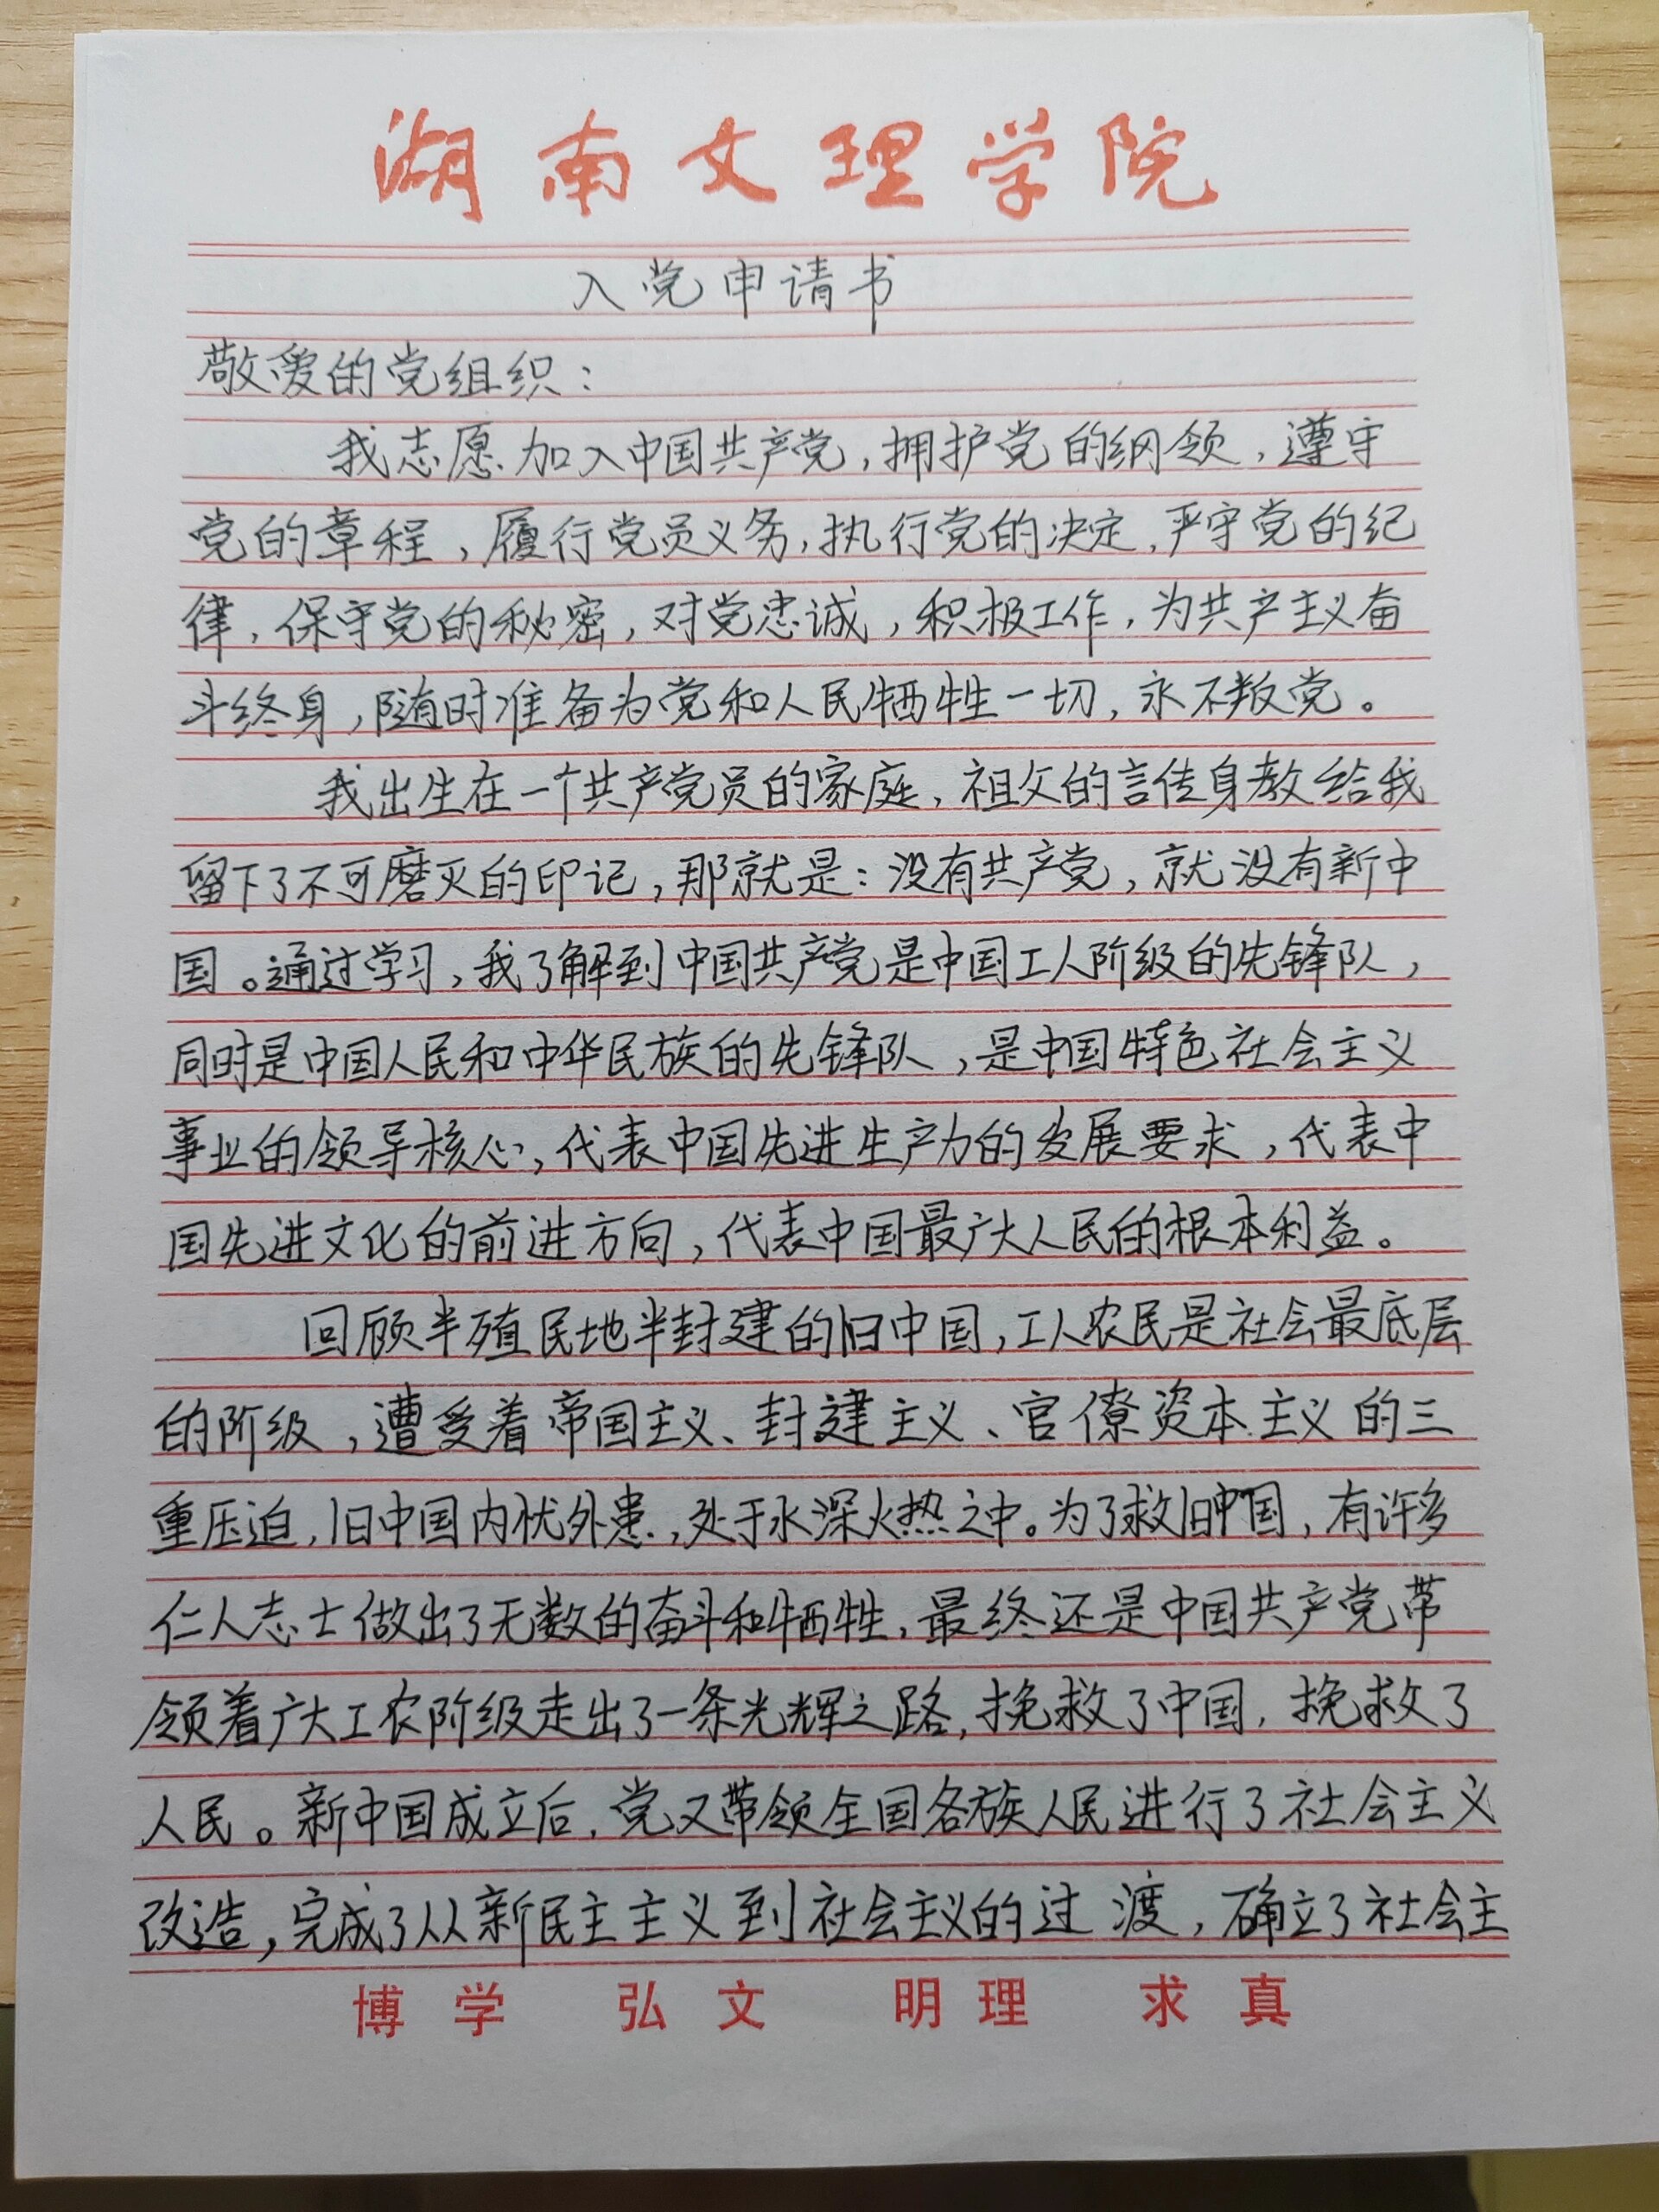 湖南文理学院
入党申请书
敬爱的党组织：
我志愿加入中国共产党，拥护党的纲领，遵守
党的章程，履行党员义务，执行党的决定，严守党的纪
律，保守党的秘密，对党忠诚，积极工作，为共产主义奋
斗终身，随时准备为党和人民牺牲一切，永不叛党。
我出生在一个共产党员的家庭，祖父的言传身教给我
留下了不可磨灭的印记，那就是：没有共产党，就没有新中
国。通过学习，我了解到中国共产党是中国工人阶级的先锋队，
同时是中国人民和中华民族的先锋队，是中国特色社会主义
事业的领导核心，代表中国先进生产力的发展要求，代表中
国先进文化的前进方向，代表中国最广大人民的根本利益。
回顾半殖民地半封建的旧中国，工人农民是社会最底层
的阶级，遭受着帝国主义、封建主义、官僚资本主义的三
重压迫，旧中国内忧外患，处于水深火热之中。为了救旧中国，有许多
仁人志士做出了无数的奋斗和牺牲，最终还是中国共产党带
领着广大工农阶级走出了一条光辉之路，挽救了中国，挽救了
人民。新中国成立后，党又带领全国各族人民进行了社会主义
改造，完成了从新民主主义到社会主义的过渡，确立了社会主
博学 弘文 明理 求真